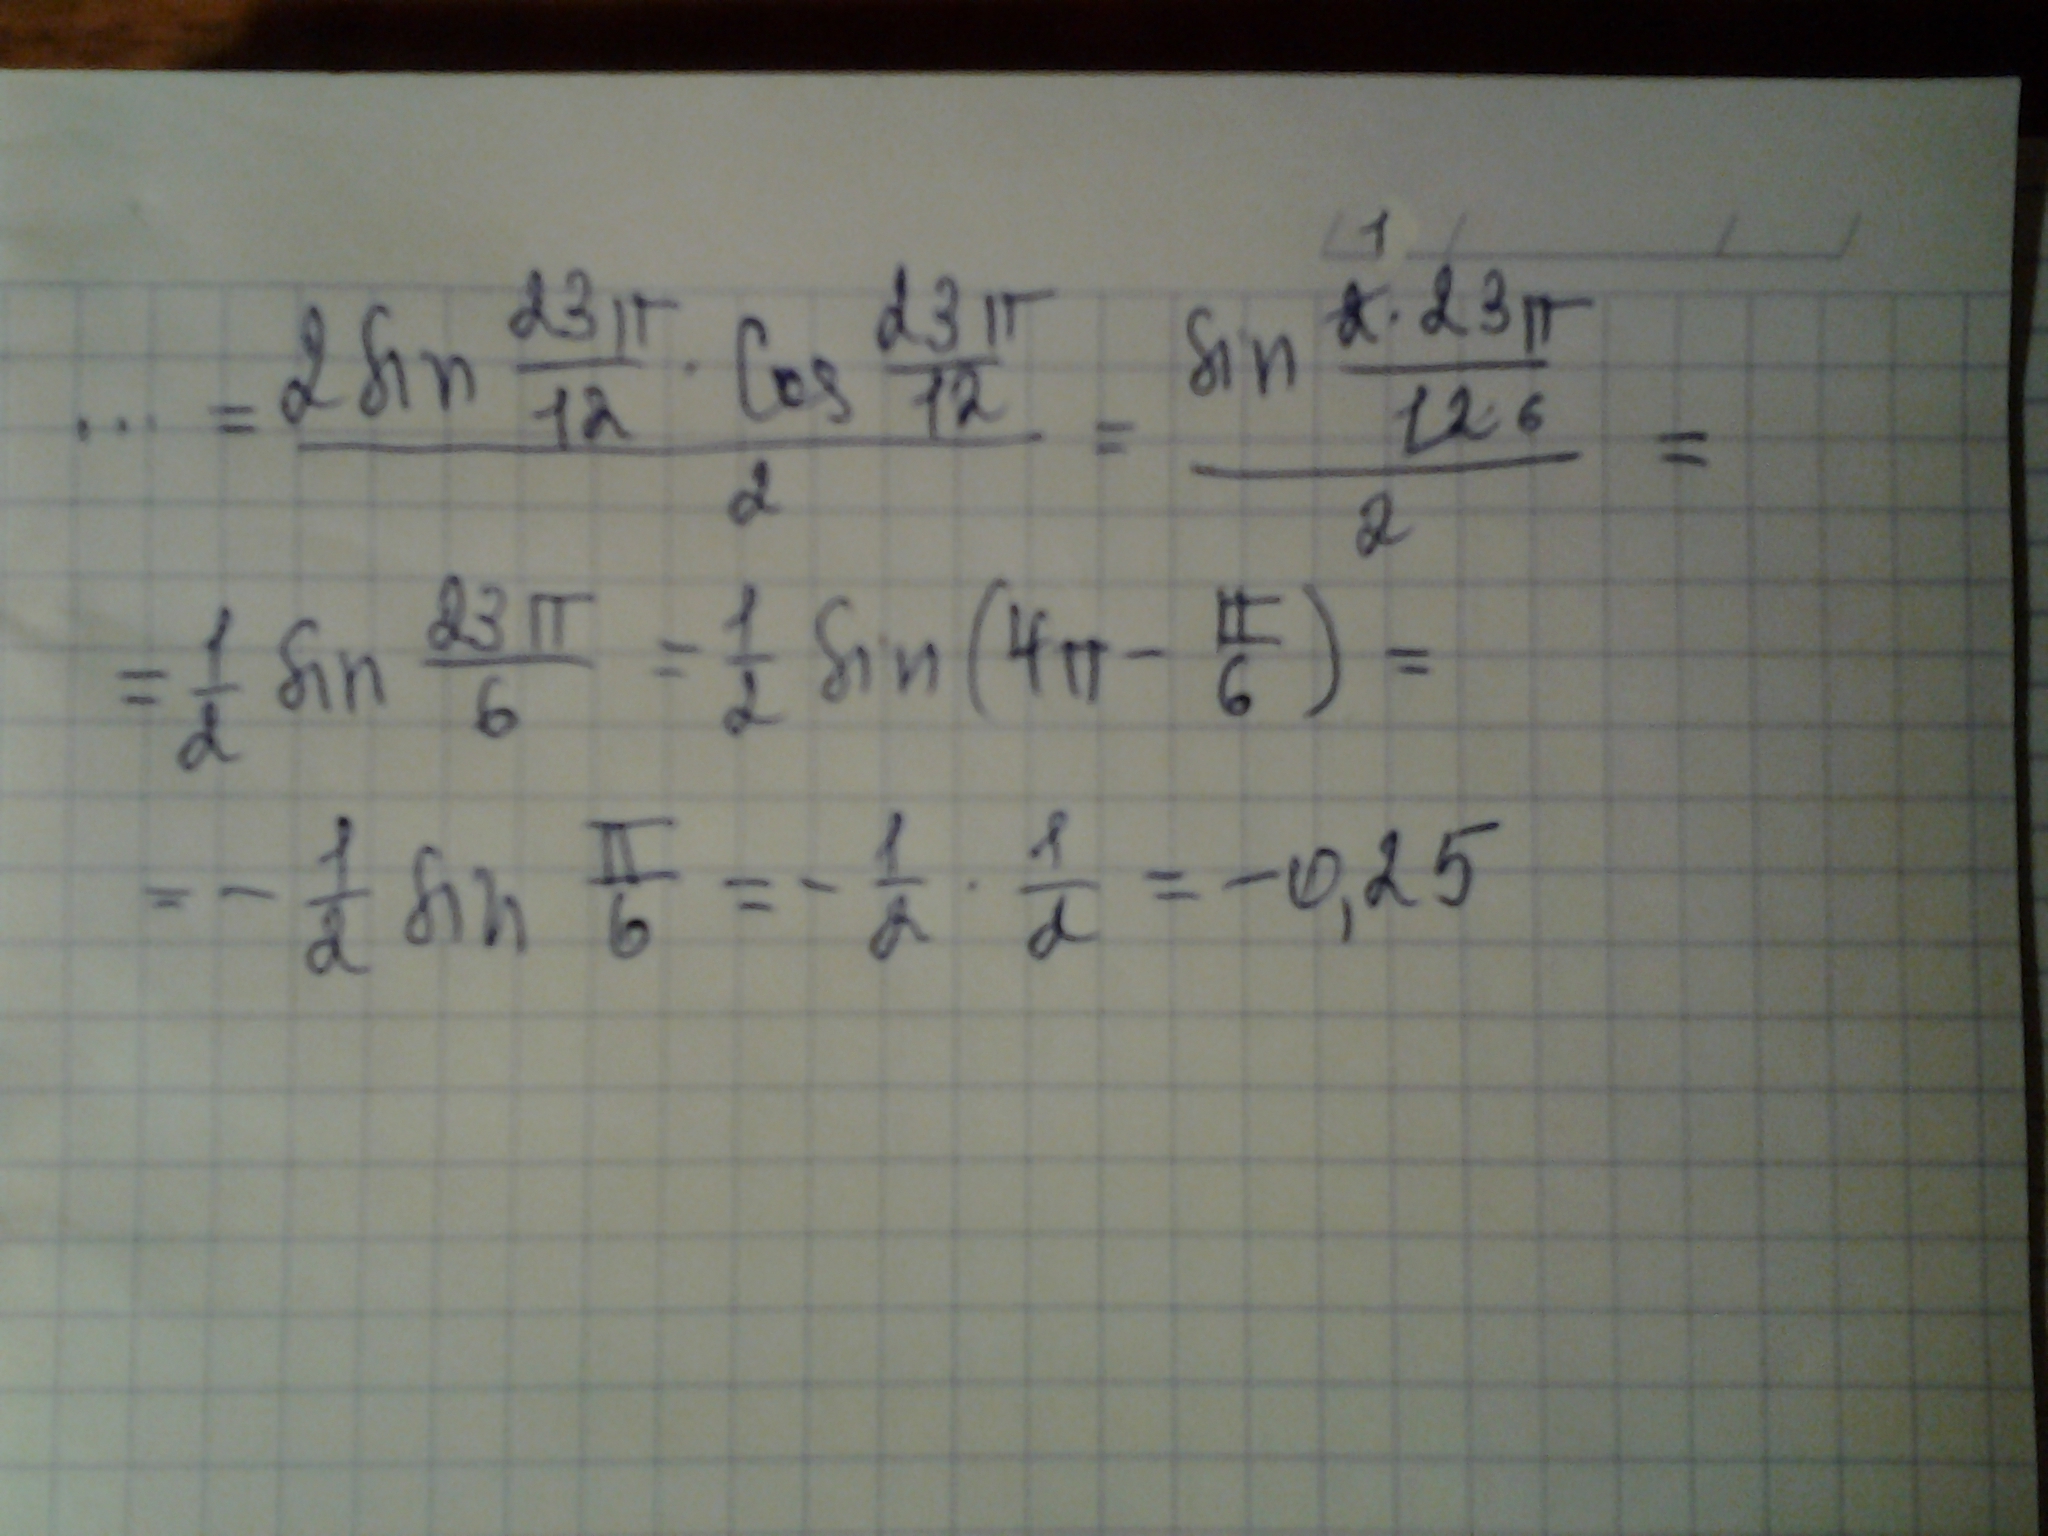 1
... = (2 sin 23π/12 · cos 23π/12)/2 = (sin 2·23π/12 6)/2 =
= 1/2 sin 23π/6 = 1/2 sin(4π − π/6) =
= − 1/2 sin π/6 = − 1/2 · 1/2 = −0,25